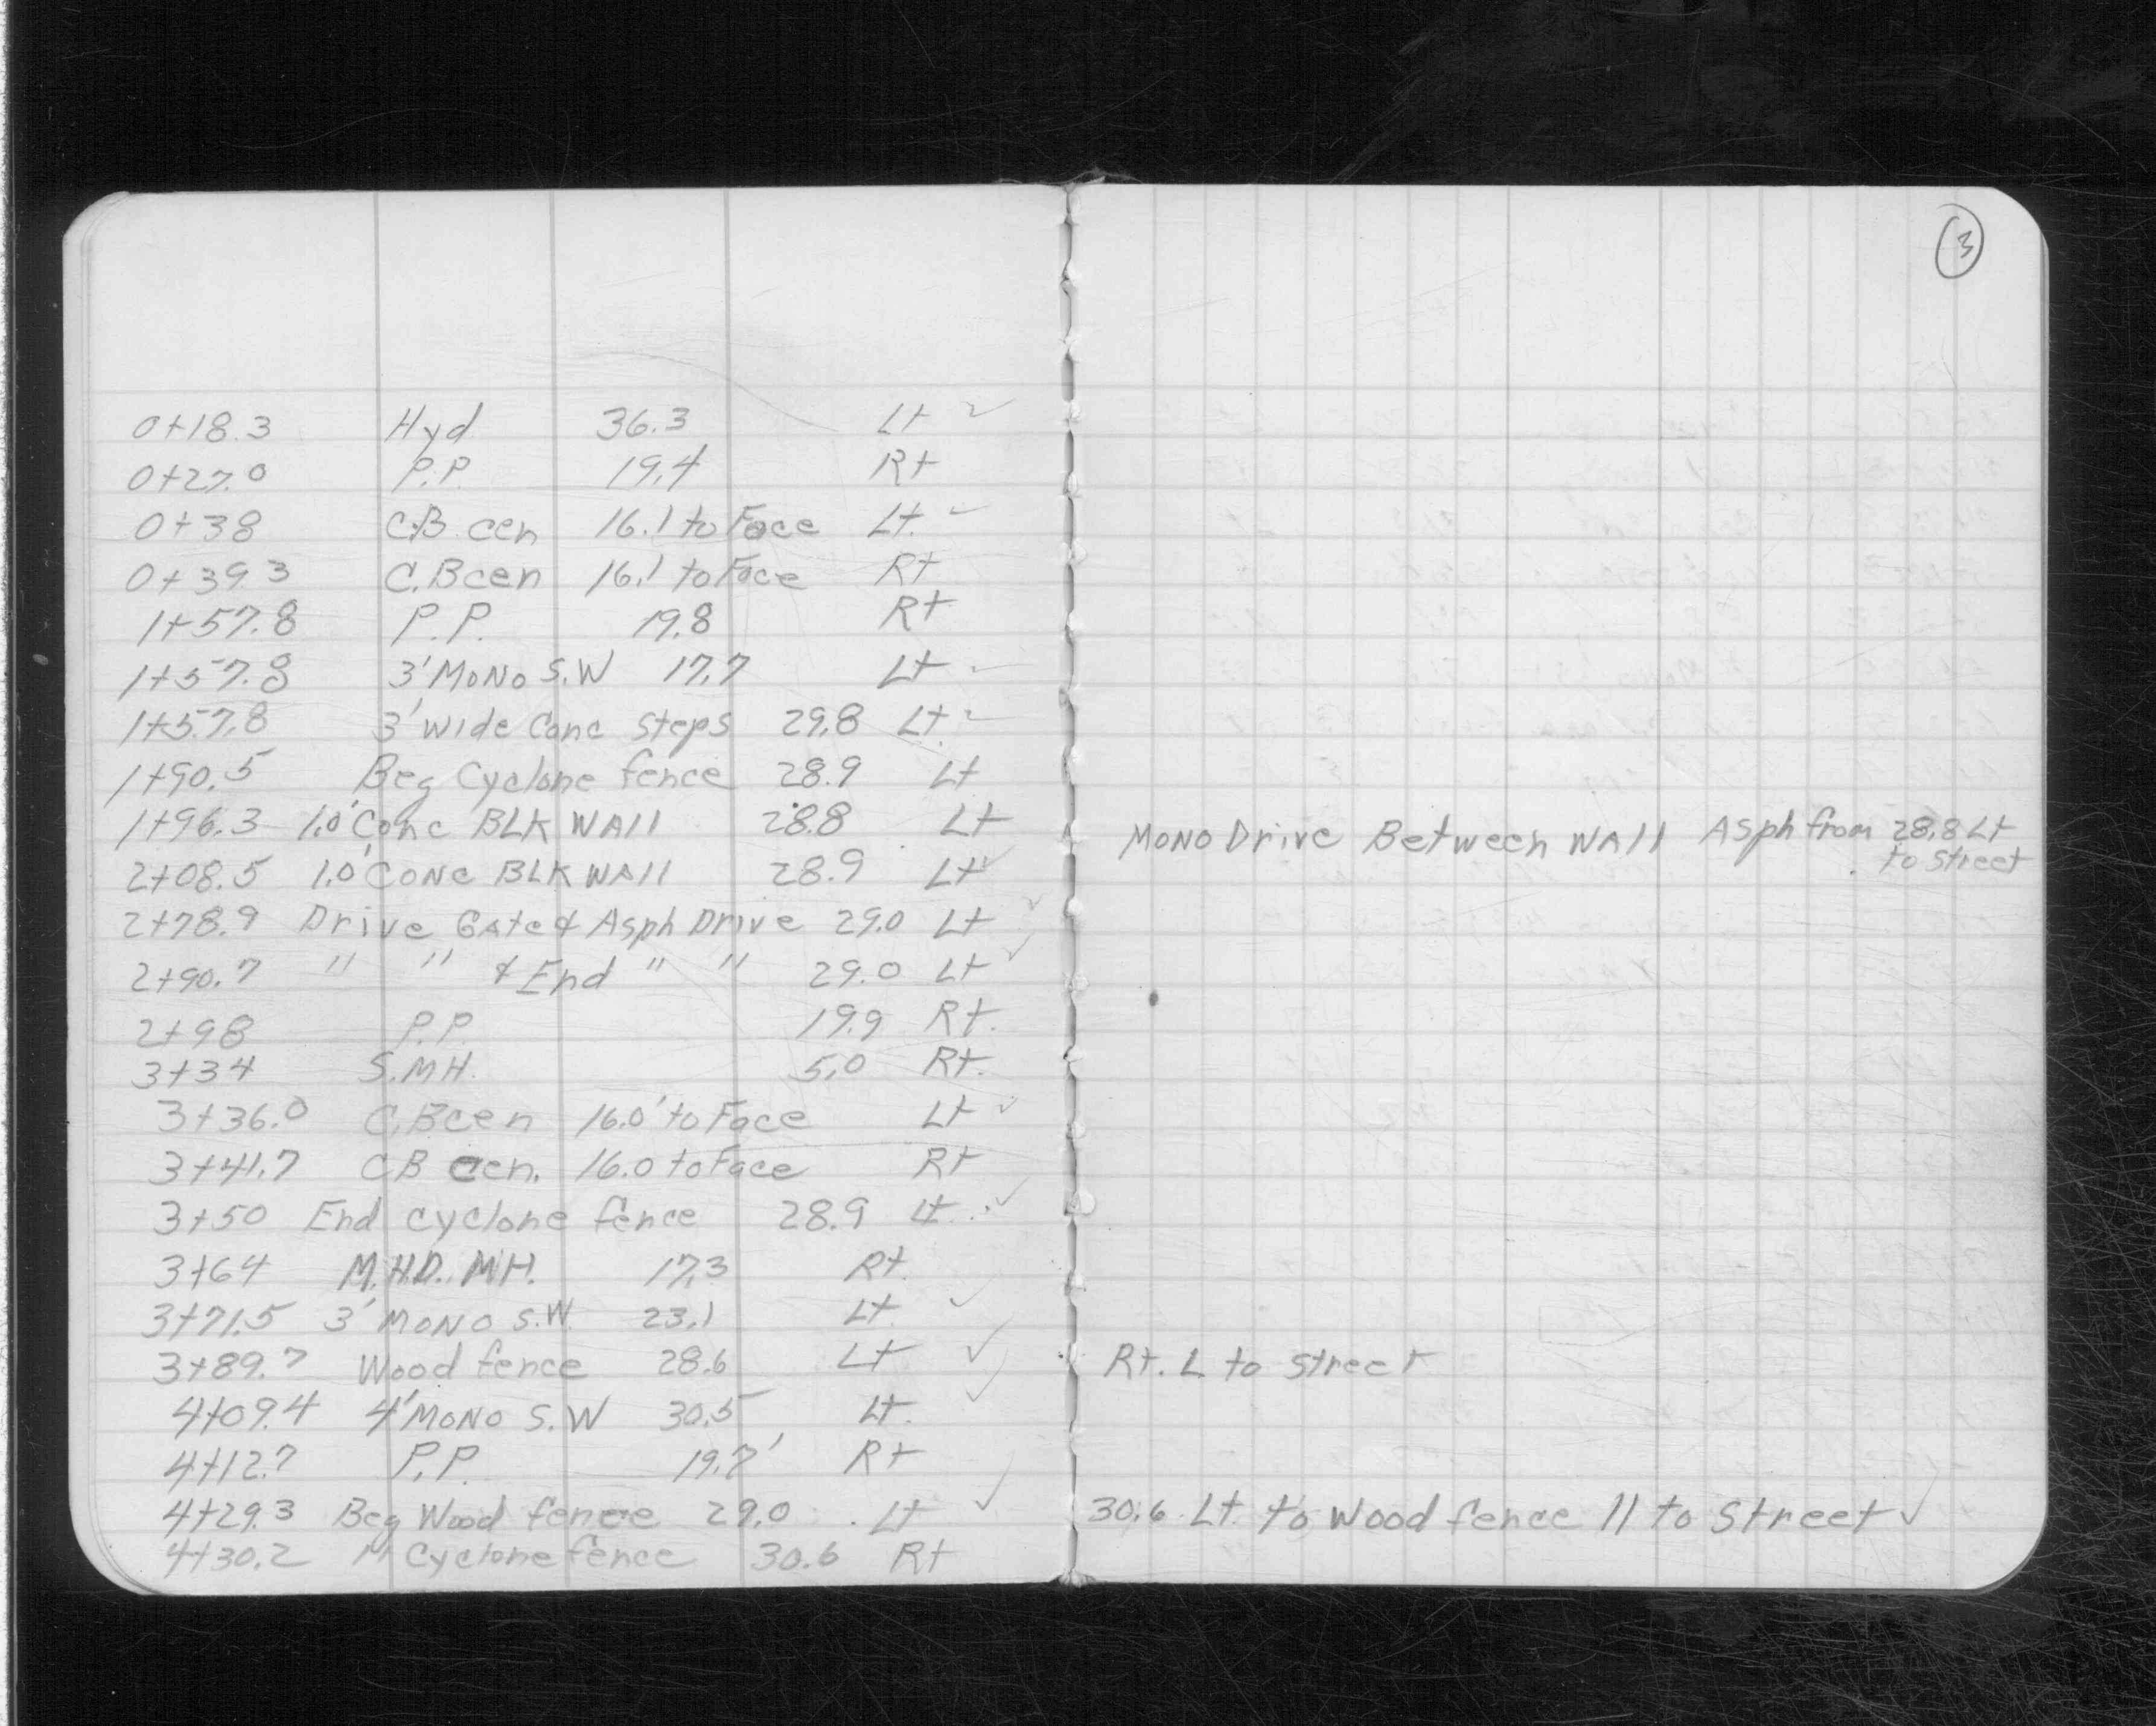 3
0+18.3 Hyd 36.3 Lt ✓
0+27.0 P.P. 19.4 Rt
0+38 C.B cen 16.1 to Face Lt. ✓
0+39.3 C.B cen 16.1 to Face Rt
1+57.8 P.P. 19.8 Rt
1+57.8 3' MONO S.W 17.7 Lt ✓
1+57.8 3' wide Conc Steps 29.8 Lt. ✓
1+90.5 Beg Cyclone fence 28.9 Lt
1+96.3 1.0' Conc BLK WAll 28.8 Lt MONO Drive Between WAll Asph from 28.8 Lt
to street
2+08.5 1.0' CONC BLK WAll 28.9 Lt ✓
2+78.9 Drive Gate & Asph Drive 29.0 Lt ✓
2+90.7 " " & End " " 29.0 Lt ✓
2+98 P.P. 19.9 Rt.
3+34 S.MH. 5.0 Rt.
3+36.0 C.B cen 16.0' to Face Lt ✓
3+41.7 CB cen. 16.0 to Face Rt
3+50 End cyclone fence 28.9 Lt. ✓
3+64 M.H.D. MH. 17.3 Rt.
3+71.5 3' MONO S.W. 23.1 Lt. ✓
3+89.7 Wood fence 28.6 Lt ✓ Rt. L to street
4+09.4 4' MONO S.W 30.5 Lt. ✓
4+12.7 P.P. 19.7' Rt
4+29.3 Beg Wood fence 29.0 Lt ✓ 30.6 Lt. to Wood fence || to Street ✓
4+30.2 " Cyclone fence 30.6 Rt